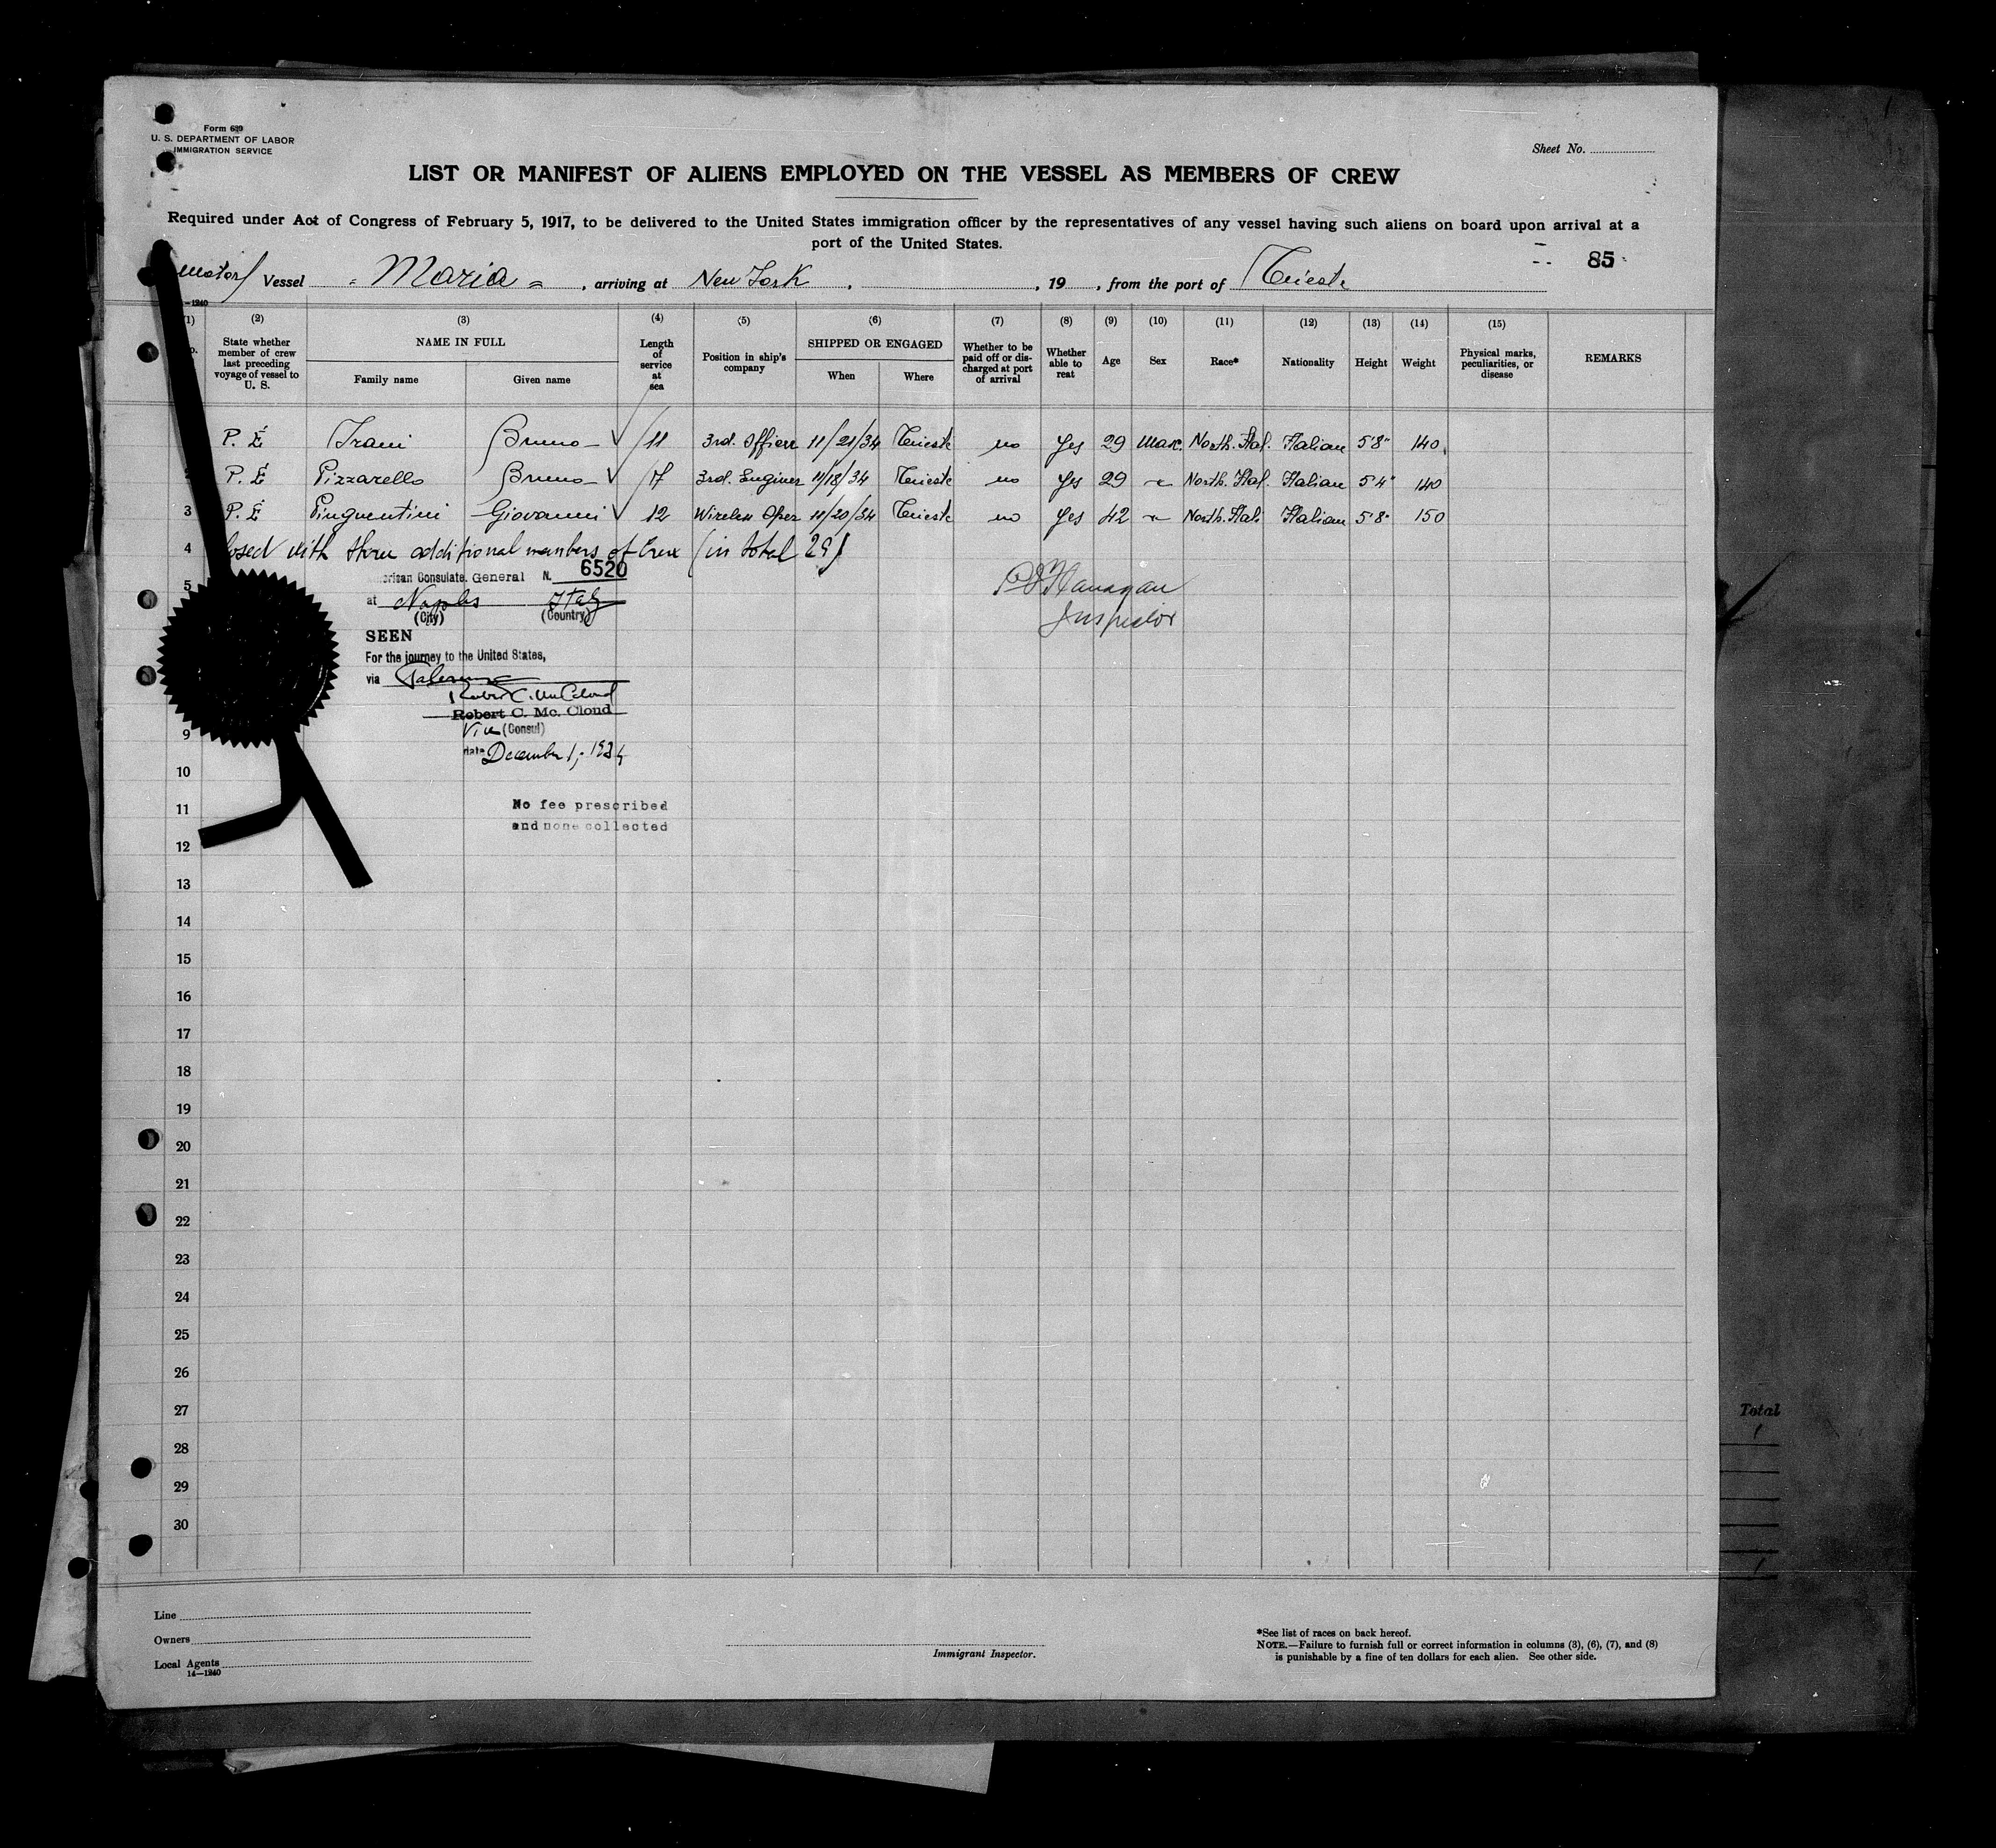 Form 689
U. S. DEPARTMENT OF LABOR
IMMIGRATION SERVICE
Sheet No.
LIST OR MANIFEST OF ALIENS EMPLOYED ON THE VESSEL AS MEMBERS OF CREW
Required under Act of Congress of February 5, 1917, to be delivered to the United States immigration officer by the representatives of any vessel having such aliens on board upon arrival at a
port of the United States.
85
Motor Vessel "Maria", arriving at New York, 19 , from the port of Trieste
-1240
(1) (2) (3) (4) (5) (6) (7) (8) (9) (10) (11) (12) (13) (14) (15)
State whether member of crew last preceding voyage of vessel to U. S. NAME IN FULL Family name Given name Length of service at sea Position in ship's company SHIPPED OR ENGAGED When Where Whether to be paid off or discharged at port of arrival Whether able to reat Age Sex Race* Nationality Height Weight Physical marks, peculiarities, or disease REMARKS
P. E Trani Bruno 11 3rd. Officer 11/21/34 Trieste no yes 29 Masc. North. Ital. Italian 5'8" 140
P. E Pizzarello Bruno 7 3rd. Engineer 11/18/34 Trieste no yes 29 North. Ital. Italian 5'4" 140
3 P. E Pinguentini Giovanni 12 Wireless Oper 11/20/34 Trieste no yes 42 North. Itali Italian 5'8" 150
4 losed with three additional members of Crew (in total 29)
5 American Consulate General N. 6520
at Naples Italy
(City) (Country)
Flanagan
Inspector
SEEN
For the journey to the United States,
via Palermo
Robert C. McCloud
Robert C. Mc. Cloud
Vice (Consul)
9
date December 1, 1934
10
No fee prescribed
11
and none collected
12
13
14
15
16
17
18
19
20
21
22
23
24
25
26
27
28
29
30
Total
Line
Owners
Local Agents
14-1240
Immigrant Inspector.
*See list of races on back hereof.
NOTE.—Failure to furnish full or correct information in columns (3), (6), (7), and (8)
is punishable by a fine of ten dollars for each alien. See other side.